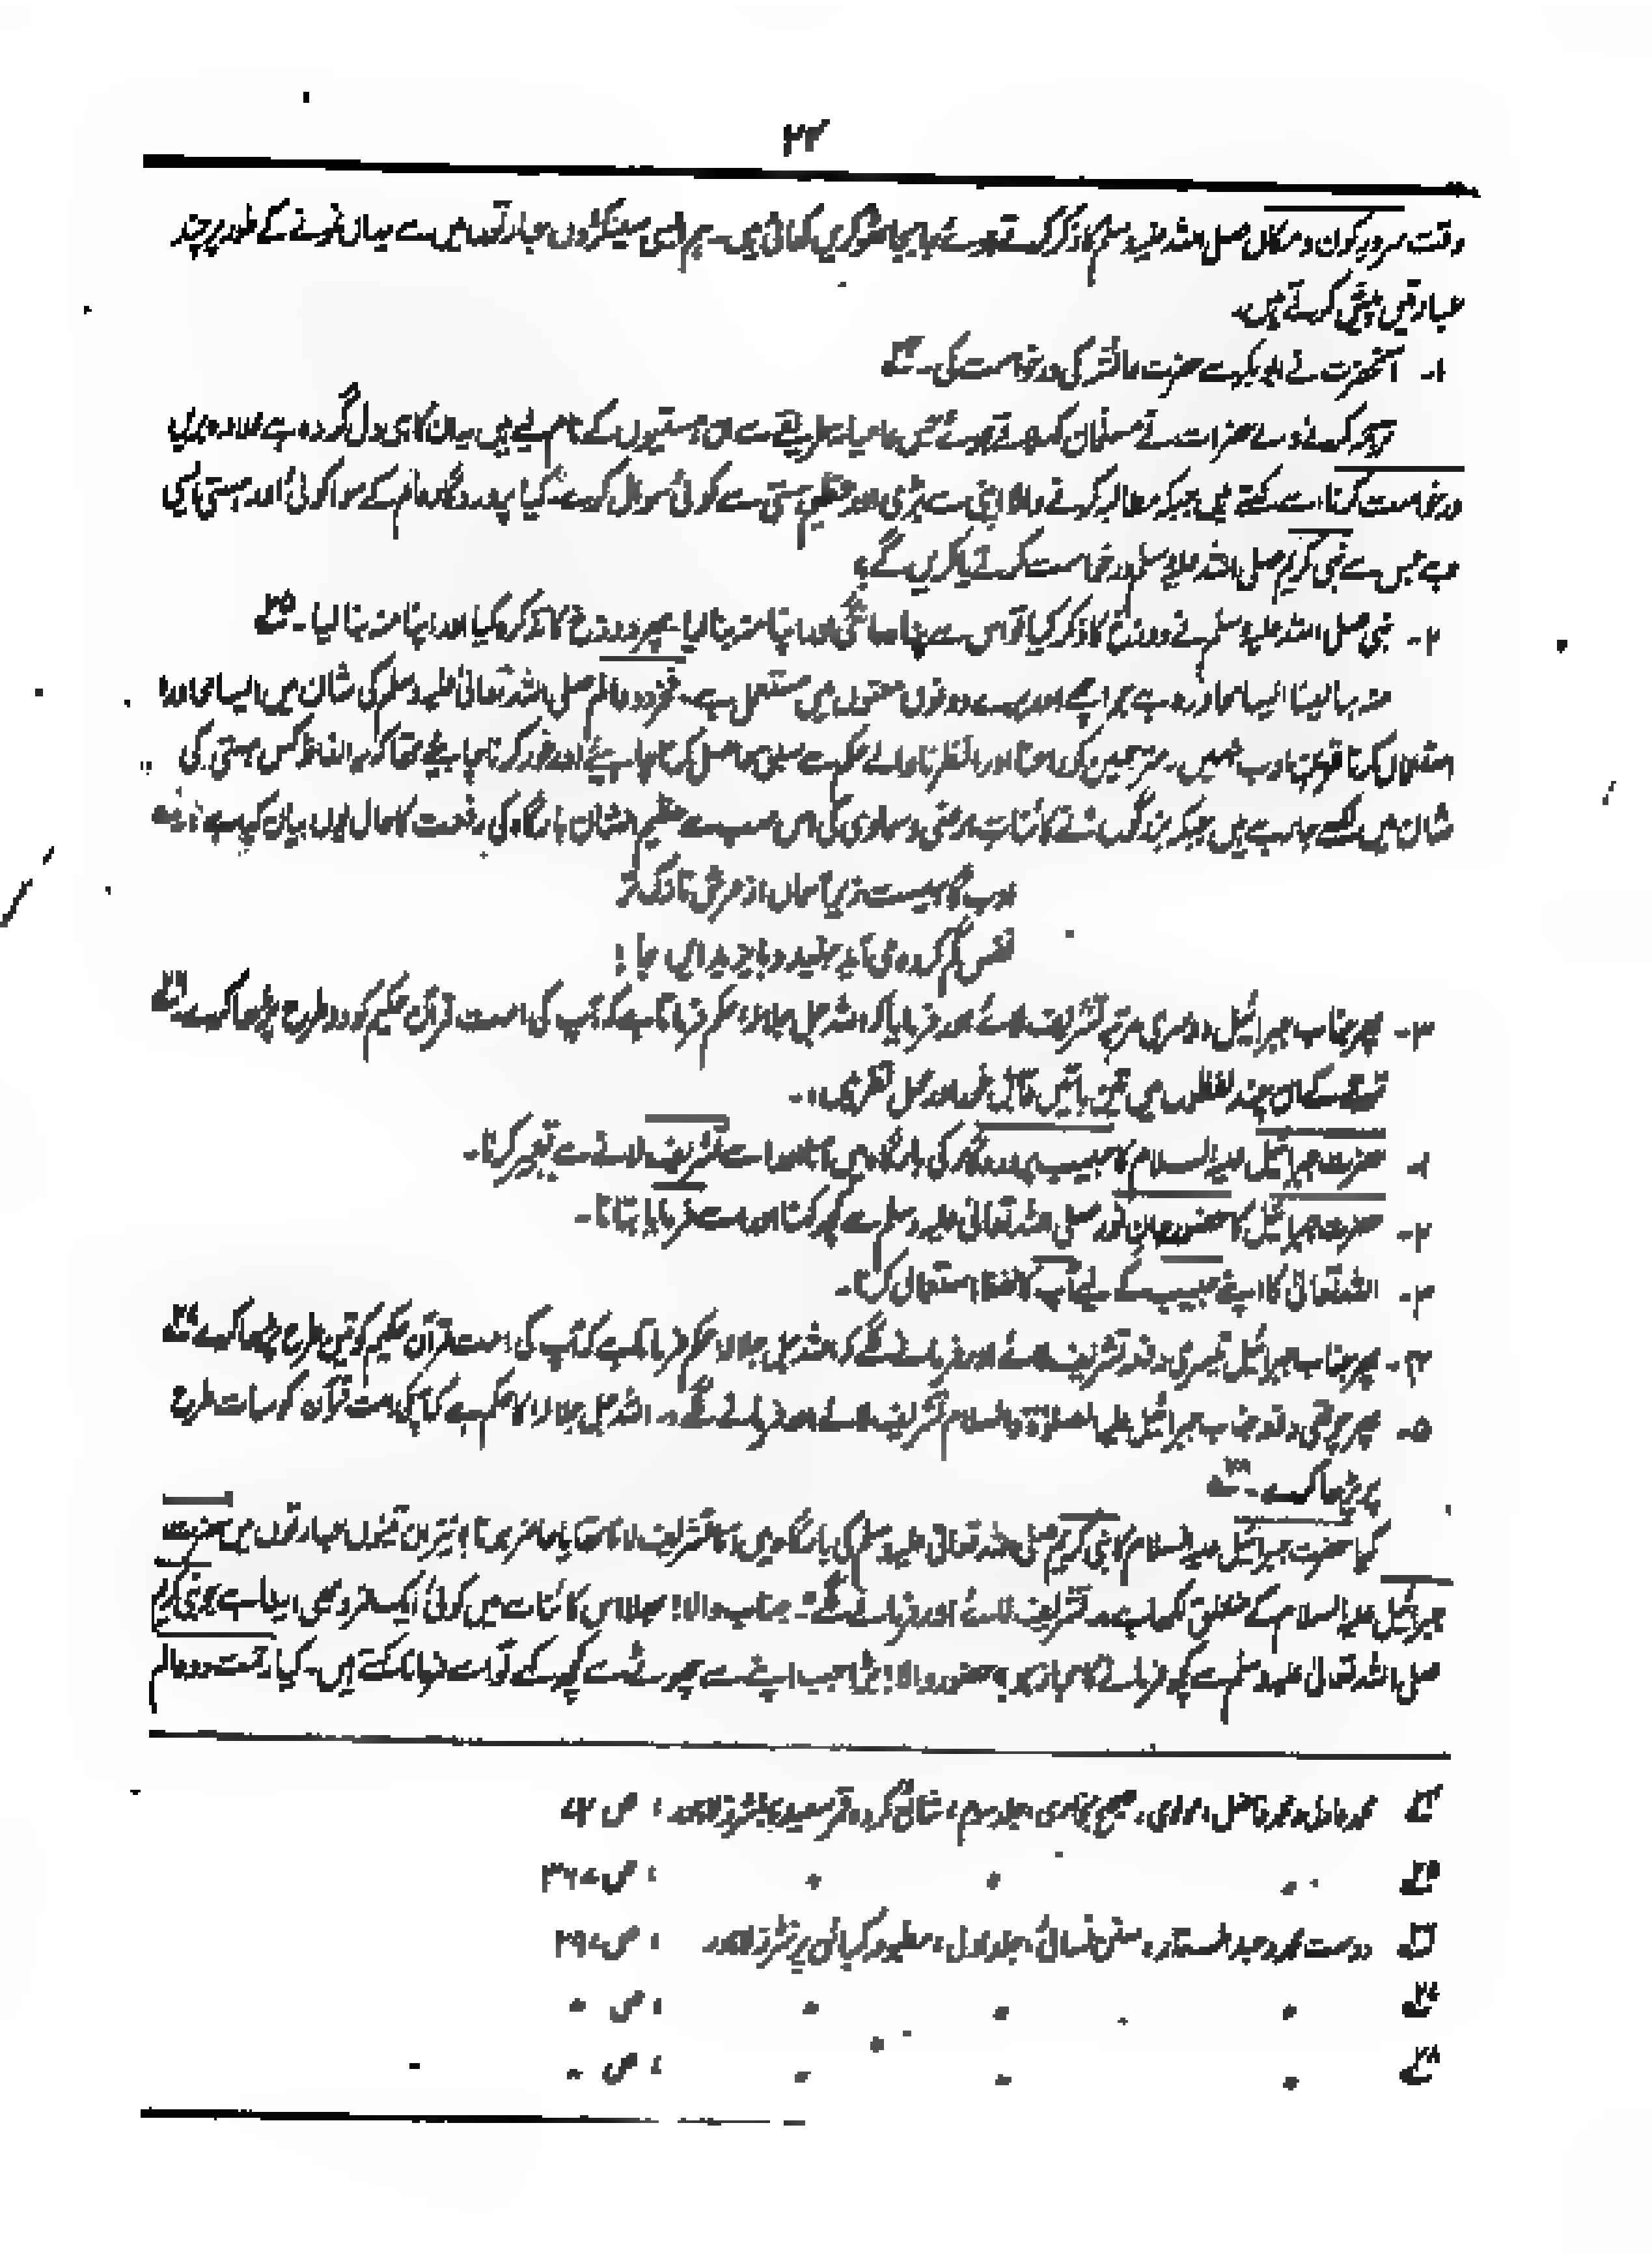 ۲۳
وقت سرورِ کون و مکاں صلی اللہ علیہ وسلم کا ذکر کرتے ہوئے جابجا ٹھوکریں کھائی ہیں۔ ہم ایسی سینکڑوں عبارتوں میں سے یہاں نمونے کے طور پر چند
عبارتیں پیش کرتے ہیں۔
۱۔ آنحضرت نے ابوبکر سے حضرت عائشہ کی درخواست کی۔ ۲۴؎
ترجمہ کرنے والے حضرات نے مسلمان کہلاتے ہوئے جس عامیانہ طریقے سے ان ہستیوں کے نام لیے ہیں یہ ان کا ہی دل گردہ ہے علاوہ بریں
درخواست کرنا اسے کہتے ہیں جبکہ مطالبہ کرنے والا اپنی سے بڑی اور عظیم ہستی سے کوئی سوال کرے۔ کیا پروردگارِ عالم کے سوا کوئی اور ہستی ایسی
ہے جس سے نبی کریم صلی اللہ علیہ وسلم درخواست کرتے یا کریں گے؟
۲۔ نبی صلی اللہ علیہ وسلم نے دوزخ کا ذکر کیا تو اس سے پناہ مانگی اور اپنا منہ بنا لیا۔ پھر دوزخ کا تذکرہ کیا اور اپنا منہ بنا لیا۔ ۲۵؎
منہ بنا لینا ایسا محاورہ ہے جو اچھے اور برے دونوں معنوں میں مستعمل ہے۔ فخرِ دو عالم صلی اللہ تعالیٰ علیہ وسلم کی شان میں ایسا محاورہ
استعمال کرنا قرینِ ادب نہیں۔ مترجمین کو راعنا اور انظرنا والے حکم سے سبق حاصل کرنا چاہیے اور غور کرنا چاہیے تھا کہ یہ الفاظ کس ہستی کی
شان میں لکھے جا رہے ہیں جبکہ بزرگوں نے کائناتِ ارضی و سماوی کی اس سب سے عظیم الشان بارگاہ کی رفعت کا حال یوں بیان کیا ہے
ادب گاہیست زیرِ آسماں از عرش نازک تر
نفس گم کردہ می آید جنید و بایزید ایں جا!
۳۔ پھر جناب جبرائیل دوسری مرتبہ تشریف لائے اور فرمایا کہ اللہ جل جلالہٗ حکم فرماتا ہے کہ آپ کی امت قرآنِ حکیم کو دو طرح پڑھا کرے۔ ۲۶؎
ترجمے کے ان چند لفظوں میں تین باتیں قابلِ غور اور محلِ نظر ہیں:۔
۱۔ حضرت جبرائیل علیہ السلام کا حبیبِ پروردگار کی بارگاہ میں آنا اور اسے تشریف لانے سے تعبیر کرنا۔
۲۔ حضرت جبرائیل کا حضور جانِ نور صلی اللہ تعالیٰ علیہ وسلم سے کچھ کہنا اور اسے فرمایا بتانا۔
۳۔ اللہ تعالیٰ کا اپنے حبیب کے لیے آپ کا لفظ استعمال کرنا۔
۴۔ پھر جناب جبرائیل تیسری دفعہ تشریف لائے اور فرمانے لگے کہ اللہ جل جلالہٗ حکم فرماتا ہے کہ آپ کی امت قرآنِ حکیم کو تین طرح پڑھا کرے ۲۷؎
۵۔ پھر چوتھی دفعہ جناب جبرائیل علیہ الصلوٰۃ والسلام تشریف لائے اور فرمانے لگے۔ اللہ جل جلالہٗ کا حکم ہے کہ آپ کی امت قرآن کو سات طرح
پر پڑھا کرے۔ ۲۸؎
کیا حضرت جبرائیل علیہ السلام کا نبی کریم صلی اللہ تعالیٰ علیہ وسلم کی بارگاہ میں آنا تشریف لانا تھا یا حاضر ہونا؟ نیز ان تینوں عبارتوں میں حضرت
جبرائیل علیہ السلام کے متعلق کہا ہے۔ تشریف لائے اور فرمانے لگے۔ جناب والا! بھلا اس کائنات میں کوئی ایک فرد بھی ایسا ہے جو نبی کریم
صلی اللہ تعالیٰ علیہ وسلم سے کچھ فرمانے کا مجاز ہو؟ حضور والا! بڑا جب اپنے سے چھوٹے سے کچھ کہے تو اسے فرمانا کہتے ہیں۔ کیا رحمتِ دو عالم
۲۴؎ محمد عادل و محمد فاضل، مولوی، صحیح بخاری، جلد سوم، شائع کردہ قرآن سعید پبلشرز لاہور، ص
۲۵؎ ، ص
۲۶؎ دوست محمد و عبدالستار، سنن نسائی، جلد اول، مطبوعہ کمبائن پرنٹرز لاہور ، ص ۲۹۰
۲۷؎ ، ص
۲۸؎ ، ص